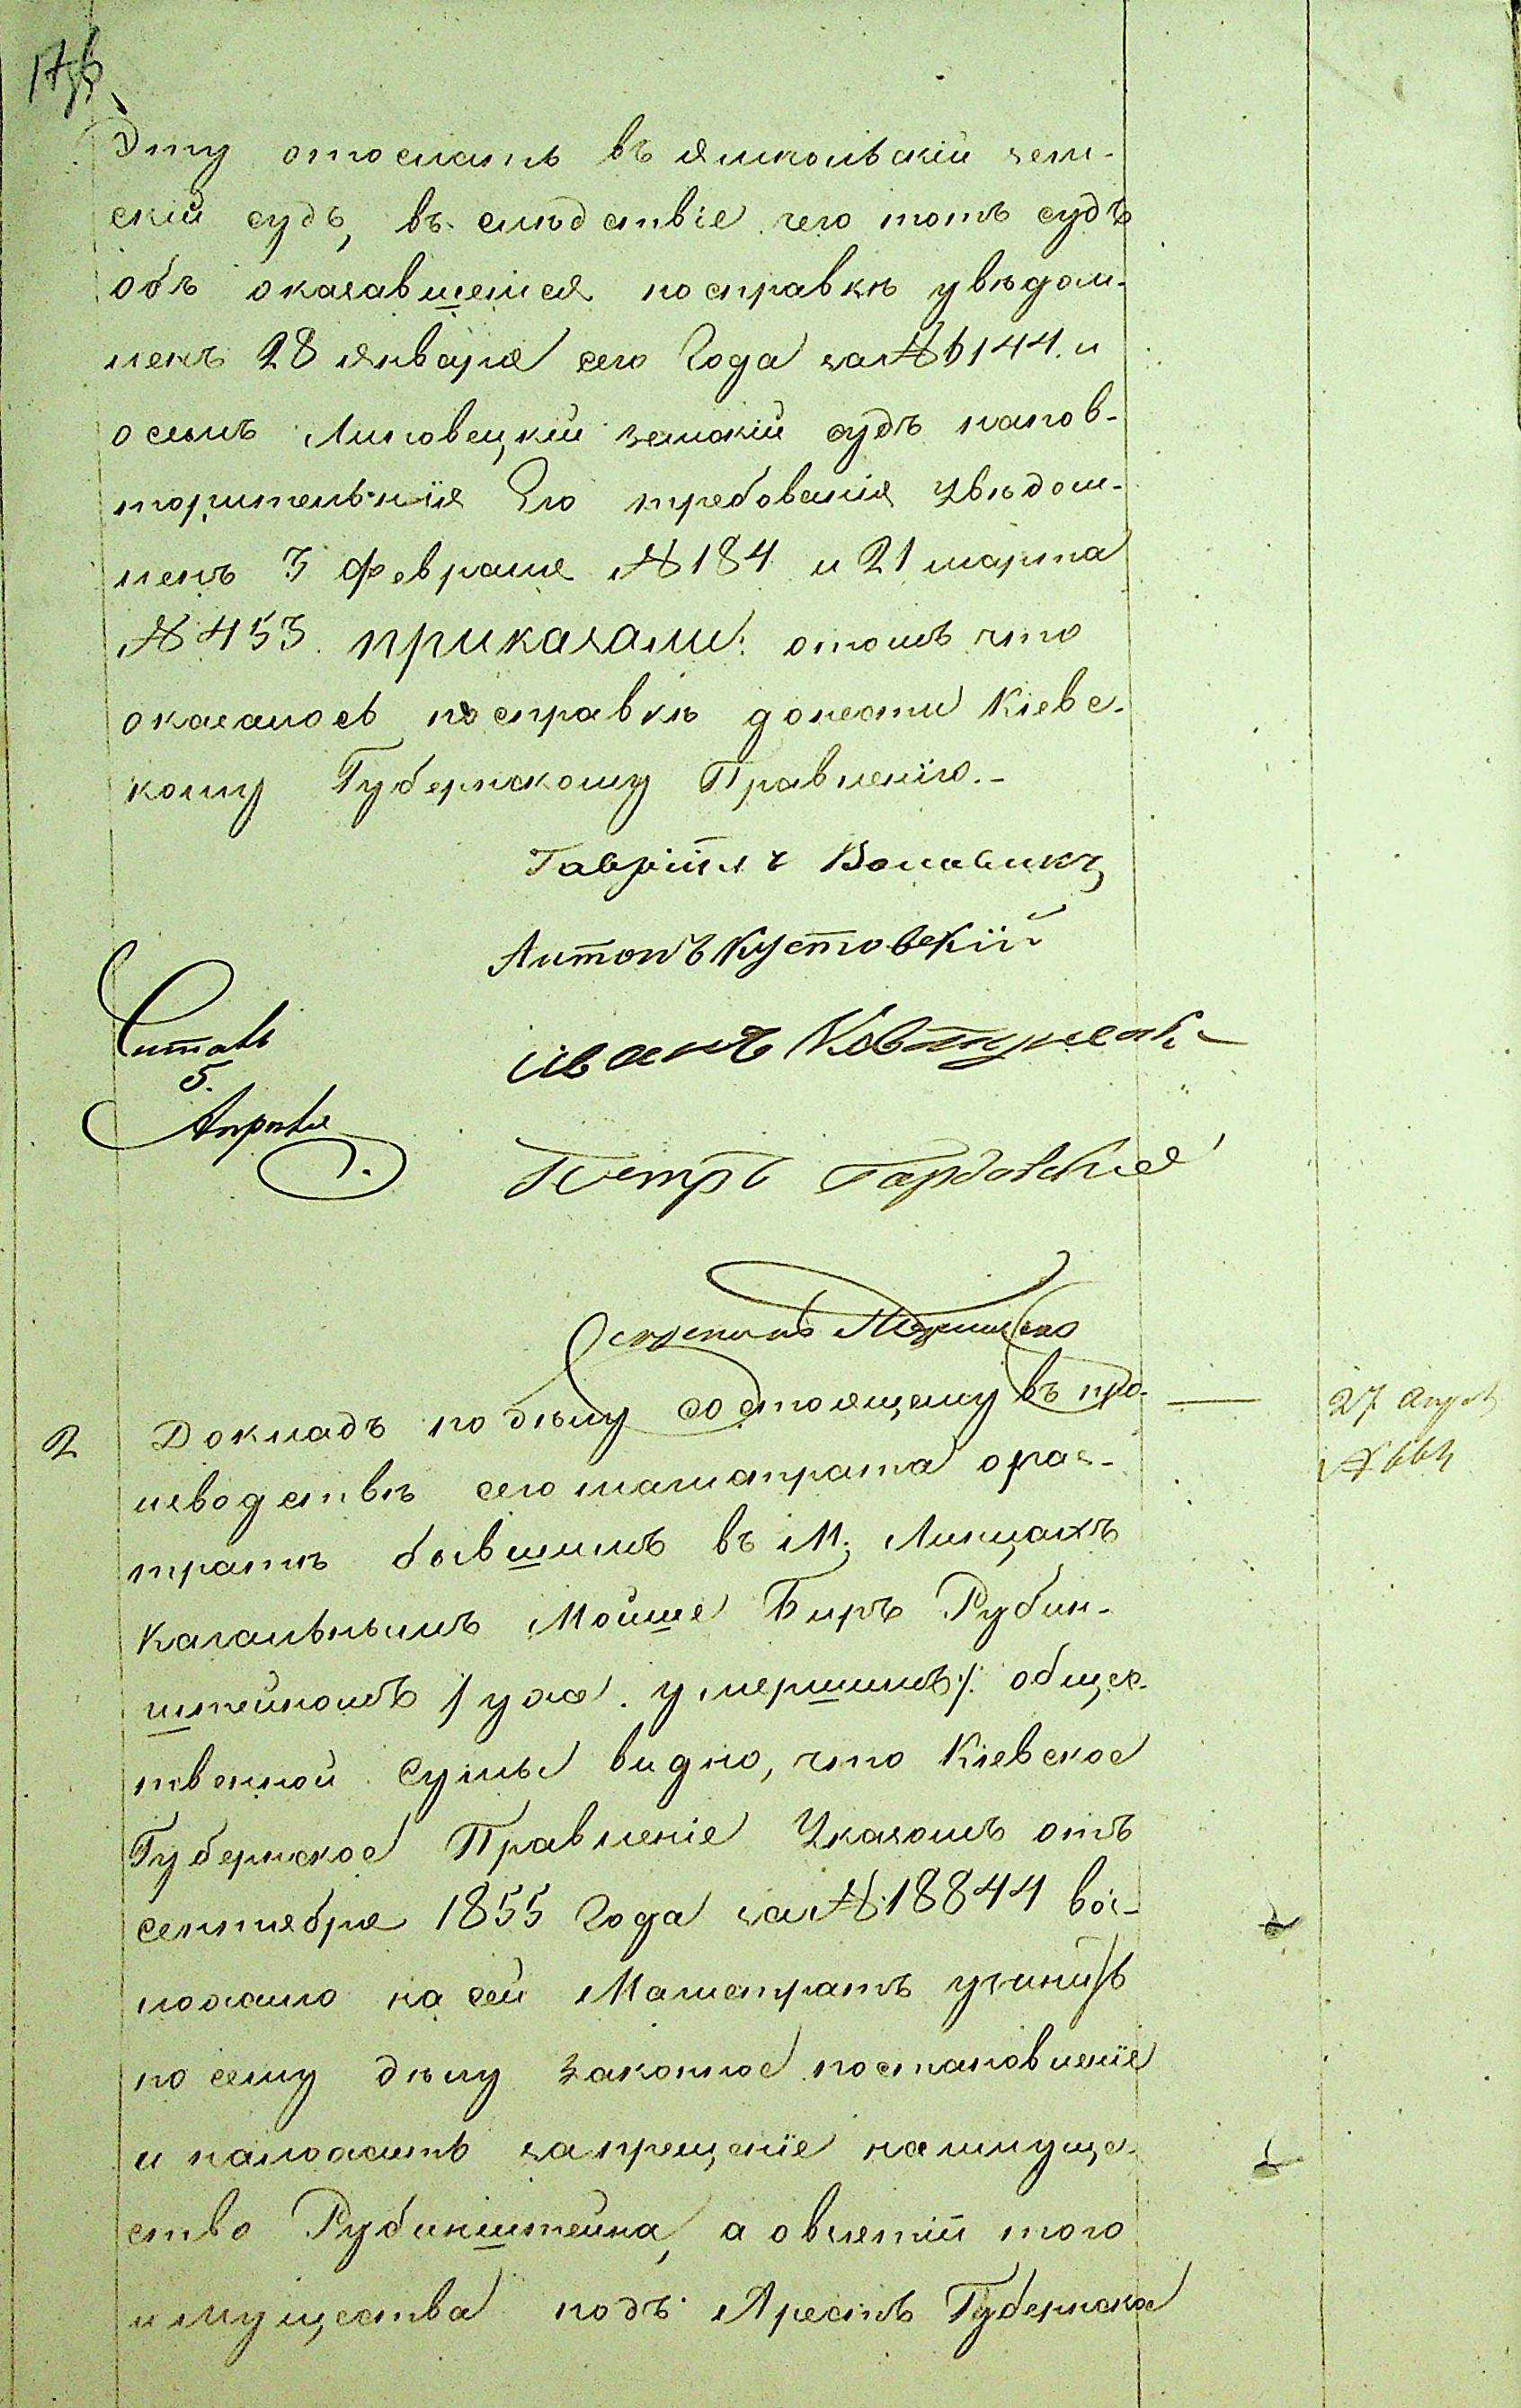 Эту отослать въ Ямпольскій зем-
скій судъ, въ слѣдствіе чего тотъ судъ
объ оказавшейся посправкѣ увѣдом-
ленъ 28 Января сего Года за № 144. и
осемъ Липовецкій земскій судъ напов-
торительнія Его требованія увѣдом-
ленъ 3 Февраля № 184 и 21 марта
№ 453. приказали: отомъ что
оказалось посправкѣ донести Кіевс-
кому Губернскому Правленію.-
Гавріилъ
Антонъ Кустовскій
Иванъ
Читалъ
5.
Апрѣля
Петръ
Скрепилъ
2 Докладъ по дѣлу состоящему въ про-
27 Апрѣл
изводствѣ сего магистрата орас-
тратѣ бывшимъ въ М. Линцахъ
Кагальнымъ Мойше Биръ Рубин-
штейномъ /: уже умершимъ :/ общес-
твенной Суммы видно, что Кіевское
Губернское Правленіе Указомъ отъ
сентября 1855 Года за № 18844 воз-
ложило на сей Магистратъ учинить
по сему дѣлу законное постановленіе
и наложить запрещеніе наимуще-
ство Рубинштейна, а овзятіи того
имущества подъ Арестъ Губернско